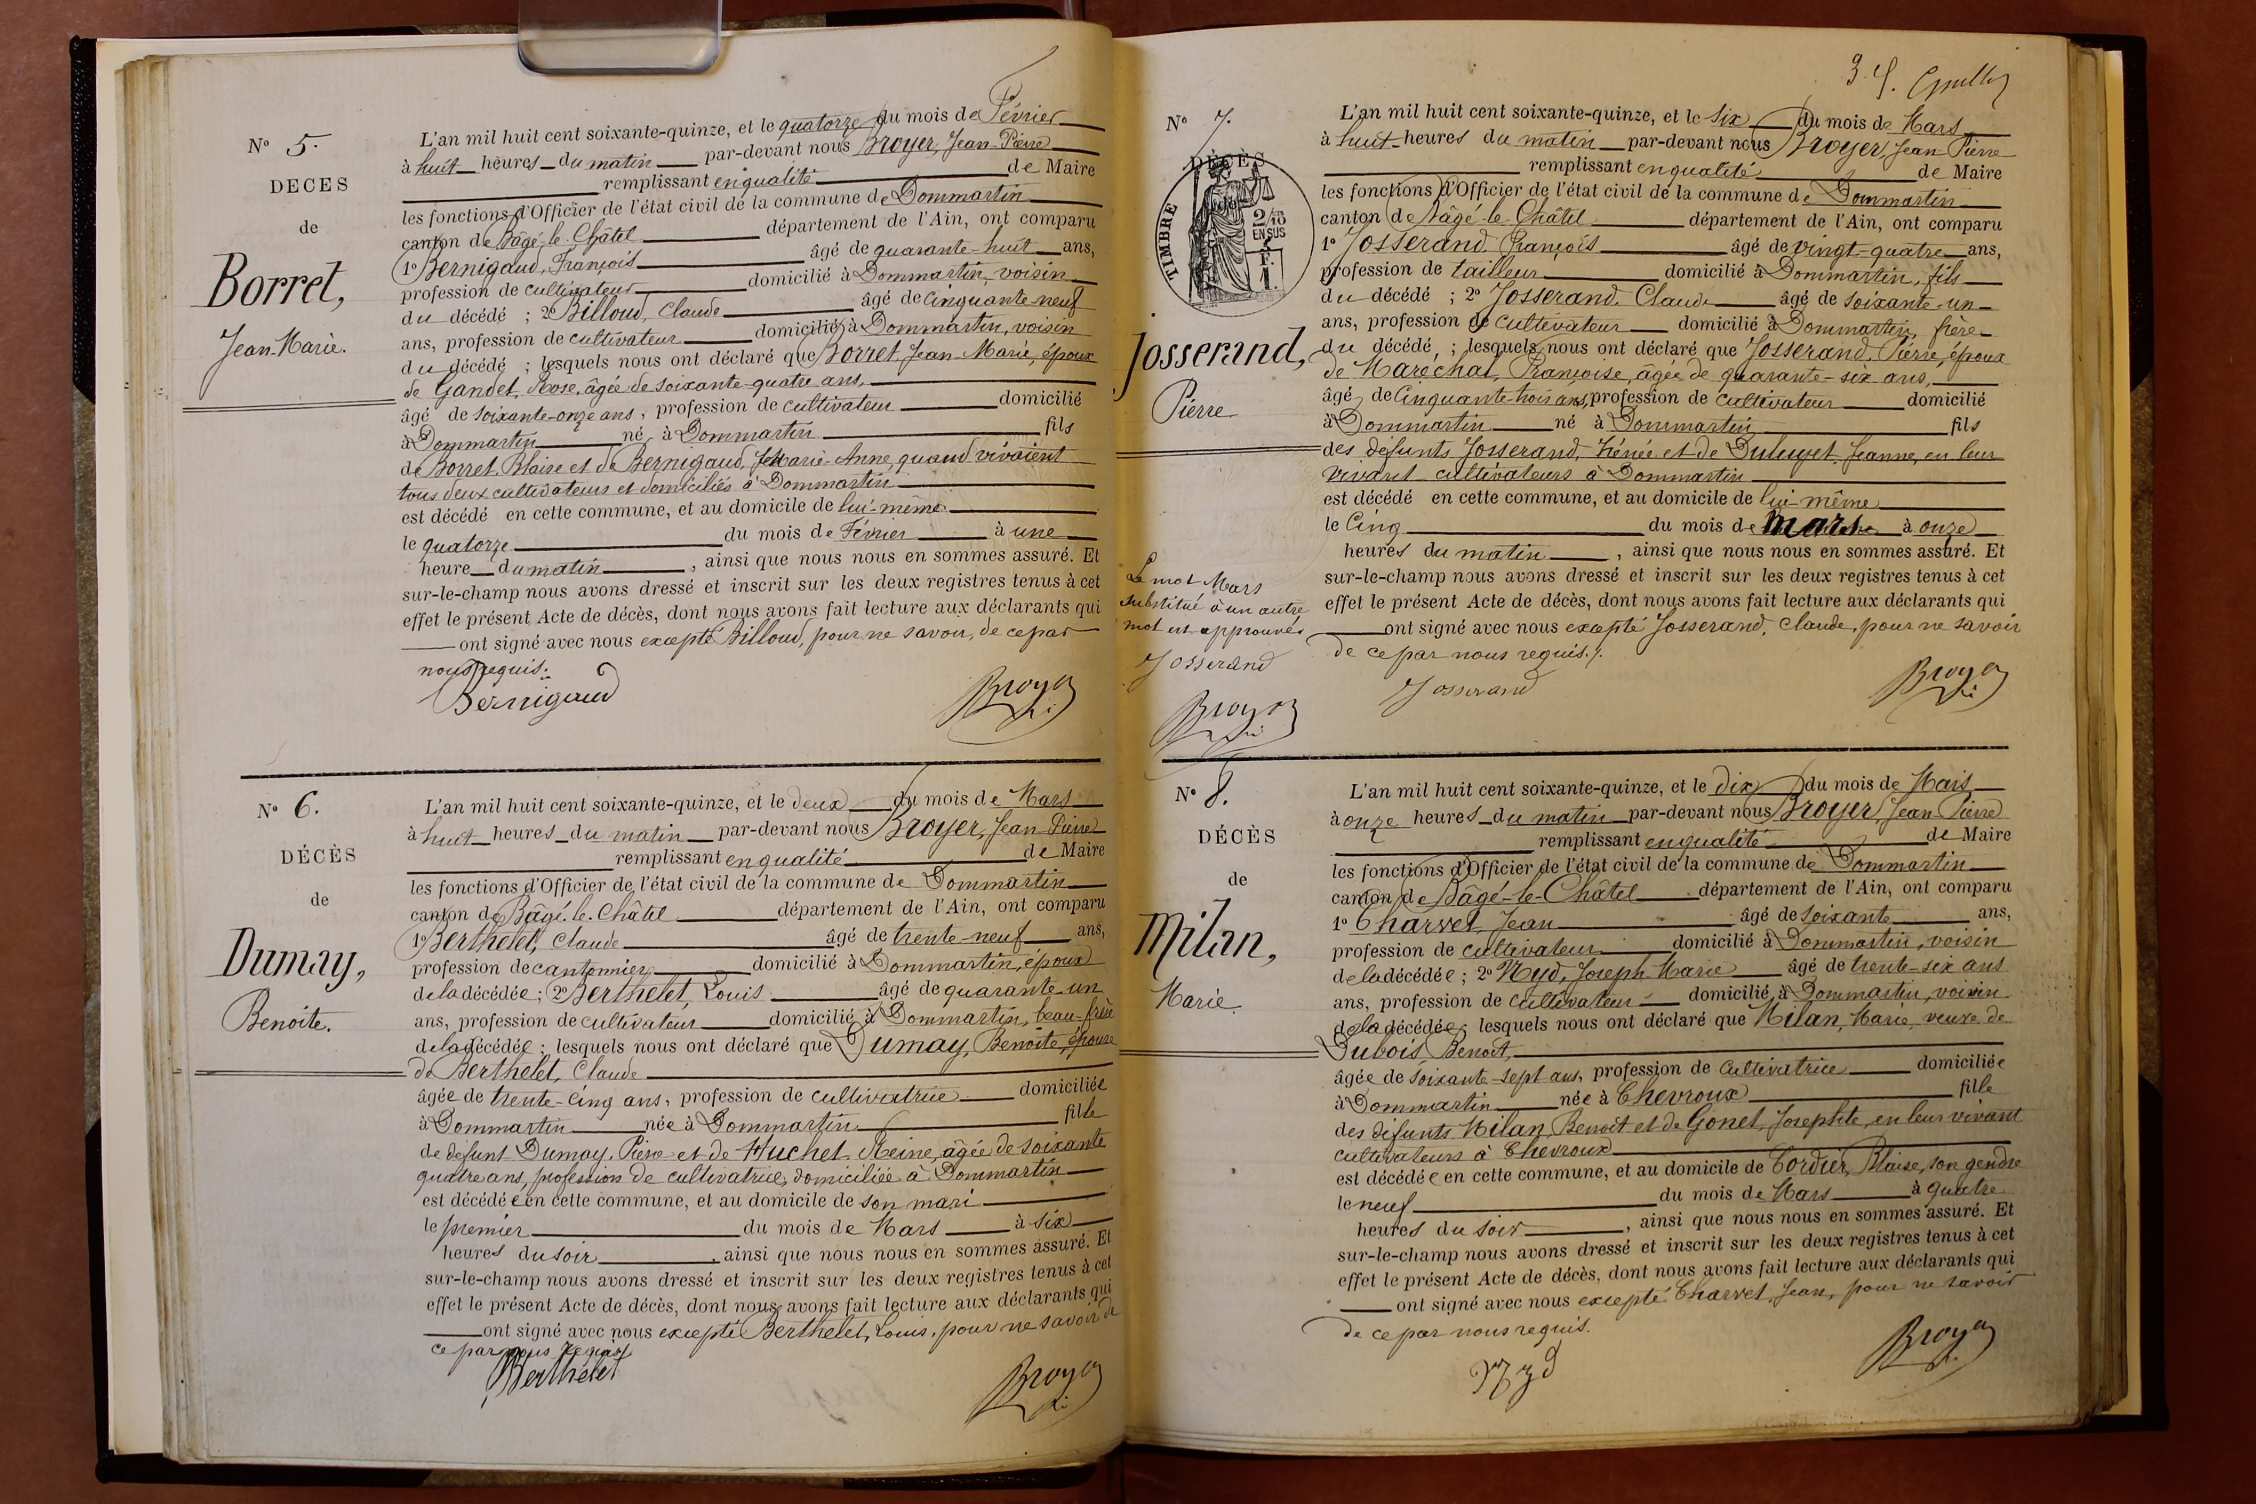 N° 5.
DÉCÈS
de
Borret,
Jean-Marie.
L'an mil huit cent soixante-quinze, et le quatorze du mois de Février
à huit heures du matin par-devant nous Broyer, Jean-Pierre
remplissant en qualité de Maire
les fonctions d'Officier de l'état civil de la commune de Dommartin
canton de Bâgé-le-Châtel département de l'Ain, ont comparu
1° Bernigaud, François âgé de quarante-huit ans,
profession de cultivateur domicilié à Dommartin, voisin
du décédé ; 2° Billoud, Claude âgé de cinquante-neuf
ans, profession de cultivateur domicilié à Dommartin, voisin
du décédé ; lesquels nous ont déclaré que Borret, Jean-Marie, époux
de Gandet, Rose, âgée de soixante-quatre ans,
âgé de soixante-onze ans, profession de cultivateur domicilié
à Dommartin né à Dommartin fils
de Borret, Blaise et de Bernigaud, Marie-Anne, quand vivaient
tous deux cultivateurs et domiciliés à Dommartin
est décédé en cette commune, et au domicile de lui-même
le quatorze du mois de Février à une
heure du matin, ainsi que nous nous en sommes assuré. Et
sur-le-champ nous avons dressé et inscrit sur les deux registres tenus à cet
effet le présent Acte de décès, dont nous avons fait lecture aux déclarants qui
ont signé avec nous excepté Billoud, pour ne savoir, de ce par
nous requis.
Bernigaud Broyer
N° 6.
DÉCÈS
de
Dumay,
Benoite.
L'an mil huit cent soixante-quinze, et le deux du mois de Mars
à huit heures du matin par-devant nous Broyer, Jean-Pierre
remplissant en qualité de Maire
les fonctions d'Officier de l'état civil de la commune de Dommartin
canton de Bâgé-le-Châtel département de l'Ain, ont comparu
1° Berthelet, Claude âgé de trente-neuf ans,
profession de cantonnier domicilié à Dommartin, époux
de la décédée ; 2° Berthelet, Louis âgé de quarante-un
ans, profession de cultivateur domicilié à Dommartin, beau-frère
de la décédée ; lesquels nous ont déclaré que Dumay, Benoite, épouse
de Berthelet, Claude
âgée de trente-cinq ans, profession de cultivatrice domiciliée
à Dommartin née à Dommartin fille
de défunt Dumay, Pierre et de Huchet, Reine, âgée de soixante
quatre ans, profession de cultivatrice, domiciliée à Dommartin
est décédée en cette commune, et au domicile de son mari
le premier du mois de Mars à six
heures du soir, ainsi que nous nous en sommes assuré. Et
sur-le-champ nous avons dressé et inscrit sur les deux registres tenus à cet
effet le présent Acte de décès, dont nous avons fait lecture aux déclarants qui
ont signé avec nous excepté Berthelet, Louis, pour ne savoir de
ce par nous requis
Berthelet Broyer
34.
N° 7.
DÉCÈS
de
TIMBRE
2/10
EN SUS
Josserand,
Pierre
Le mot Mars
substitué à un autre
mot est approuvé
Josserand
Broyer
L'an mil huit cent soixante-quinze, et le six du mois de Mars
à huit heures du matin par-devant nous Broyer, Jean Pierre
remplissant en qualité de Maire
les fonctions d'Officier de l'état civil de la commune de Dommartin
canton de Bâgé-le-Châtel département de l'Ain, ont comparu
1° Josserand François âgé de vingt-quatre ans,
profession de tailleur domicilié à Dommartin, fils
du décédé ; 2° Josserand, Claude âgé de soixante-un
ans, profession de cultivateur domicilié à Dommartin, frère
du décédé, ; lesquels nous ont déclaré que Josserand, Pierre, époux
de Maréchal, Françoise, âgée de quarante-six ans,
âgé de cinquante-trois ans, profession de cultivateur domicilié
à Dommartin né à Dommartin fils
des défunts Josserand, et de Jeanne, en leur
vivant cultivateurs à Dommartin
est décédé en cette commune, et au domicile de lui-même
le cinq du mois de mars à onze
heures du matin, ainsi que nous nous en sommes assuré. Et
sur-le-champ nous avons dressé et inscrit sur les deux registres tenus à cet
effet le présent Acte de décès, dont nous avons fait lecture aux déclarants qui
ont signé avec nous excepté Josserand, Claude, pour ne savoir
de ce par nous requis.
Josserand Broyer
N° 8.
DÉCÈS
de
Milan,
Marie
L'an mil huit cent soixante-quinze, et le dix du mois de Mars
à onze heures du matin par-devant nous Broyer, Jean Pierre
remplissant en qualité de Maire
les fonctions d'Officier de l'état civil de la commune de Dommartin
canton de Bâgé-le-Châtel département de l'Ain, ont comparu
1° Charvet, Jean âgé de soixante ans,
profession de cultivateur domicilié à Dommartin, voisin
de la décédée ; 2° Nyd, Joseph-Marie âgé de trente-six ans
ans, profession de cultivateur domicilié à Dommartin, voisin
de la décédée ; lesquels nous ont déclaré que Milan, Marie, veuve de
Dubois Benoit,
âgée de soixante-sept ans, profession de cultivatrice domiciliée
à Dommartin née à Chevroux fille
des défunts Milan, Benoit et de Gonet, Josephte, en leur vivant
cultivateurs à Chevroux
est décédée en cette commune, et au domicile de Cordier, Blaise, son gendre
le neuf du mois de Mars à quatre
heures du soir, ainsi que nous nous en sommes assuré. Et
sur-le-champ nous avons dressé et inscrit sur les deux registres tenus à cet
effet le présent Acte de décès, dont nous avons fait lecture aux déclarants qui
ont signé avec nous excepté Charvet, Jean, pour ne savoir
de ce par nous requis.
Nyd Broyer